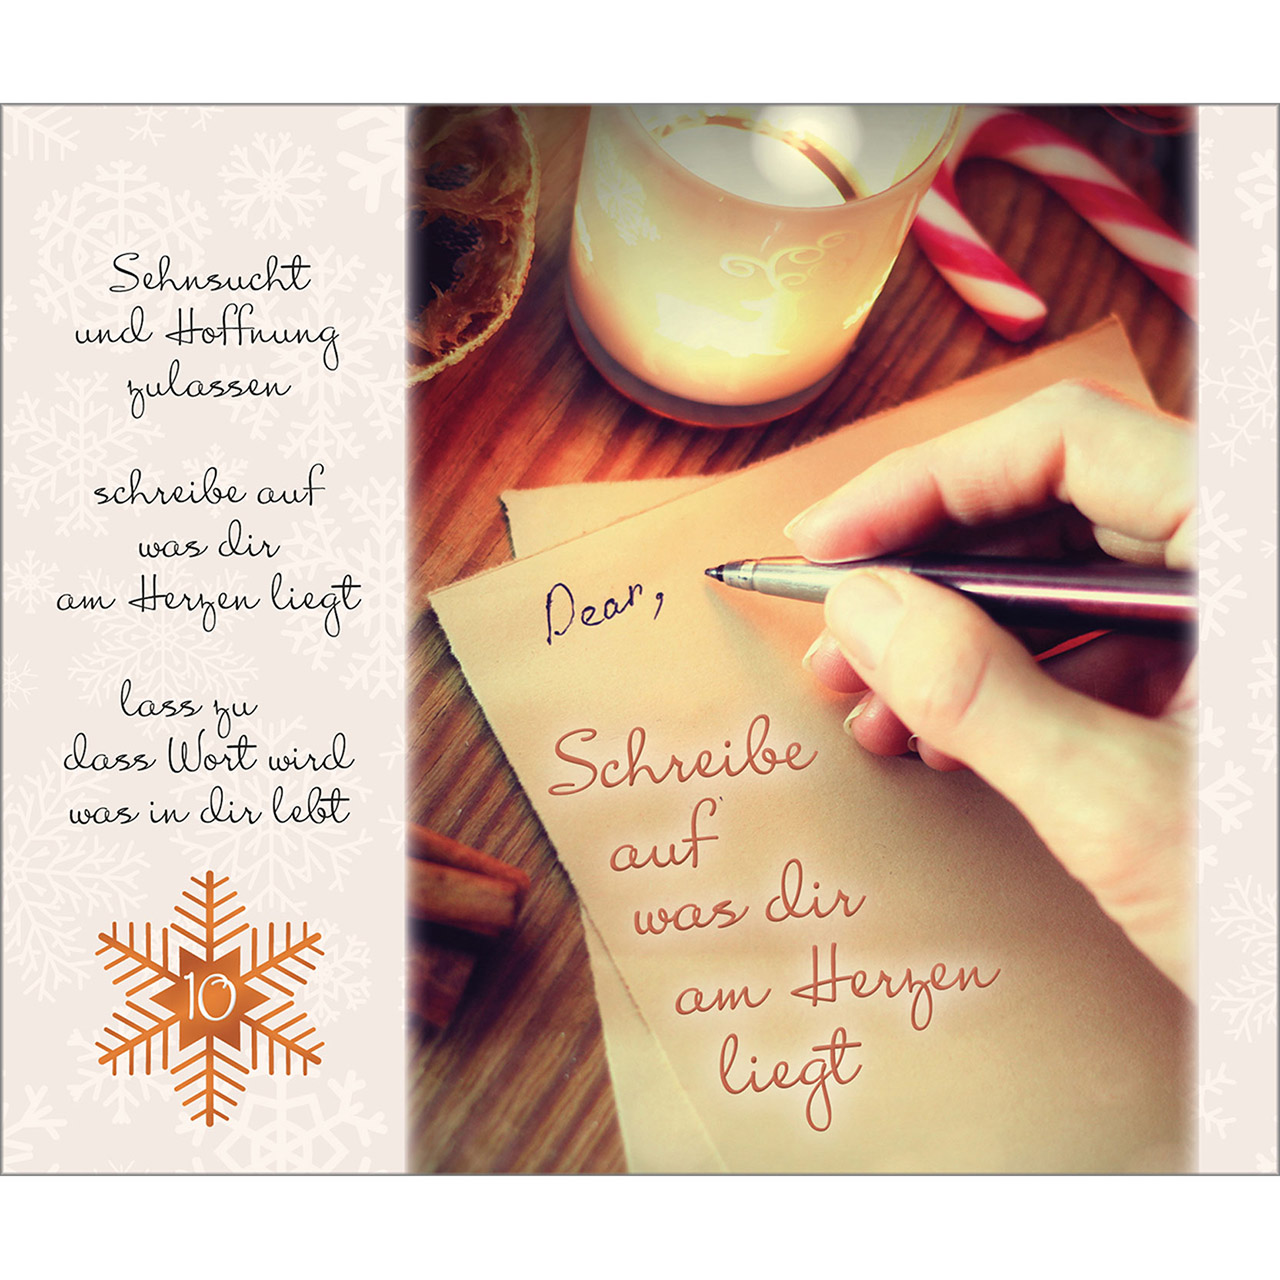 Sehnsucht
und Hoffnung
zulassen
schreibe auf
was dir
am Herzen liegt
lass zu
dass Wort wird
was in dir lebt
10
Dear,
Schreibe
auf
was dir
am Herzen
liegt